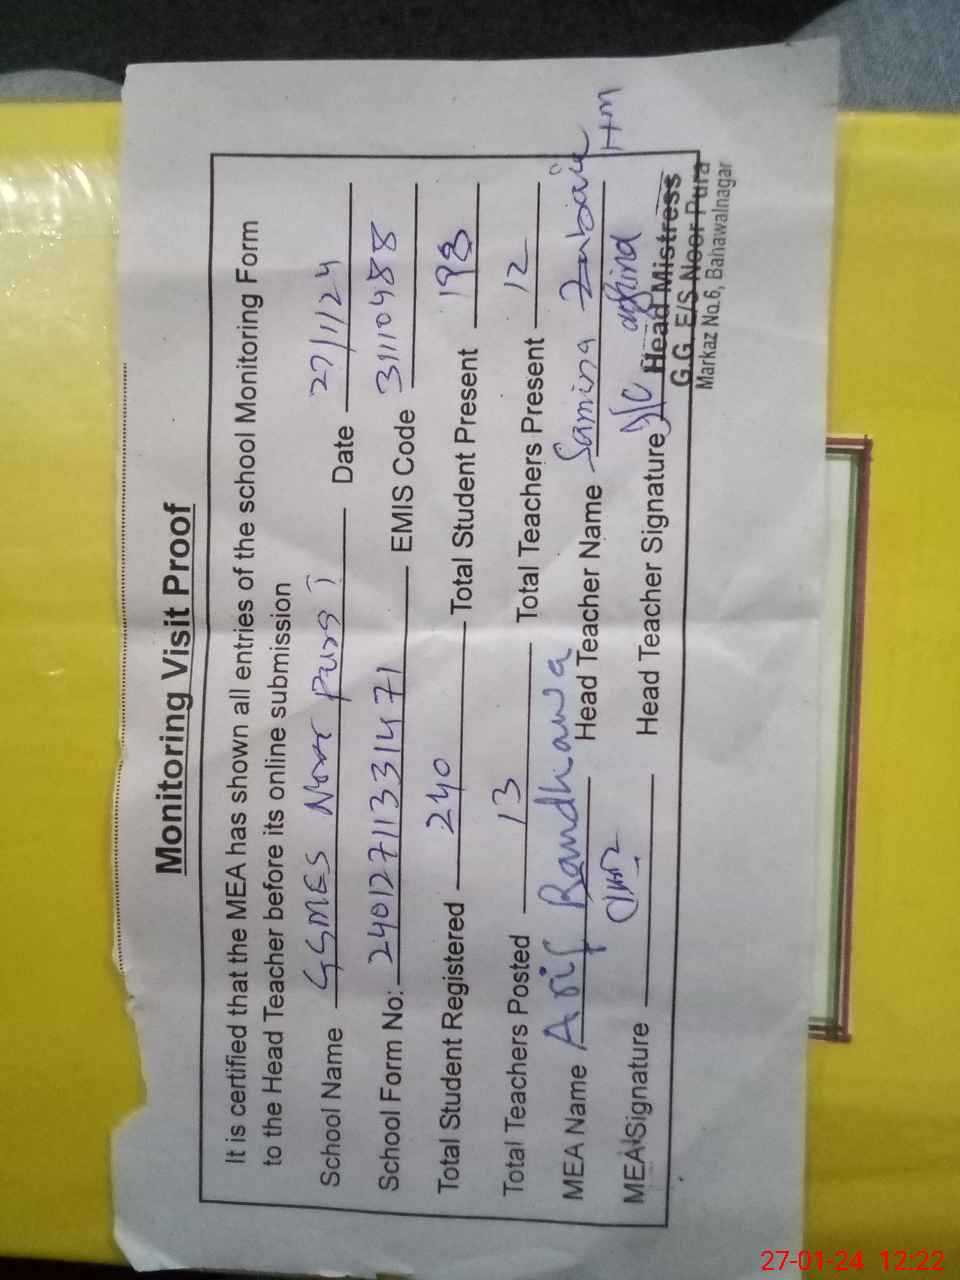 Monitoring Visit Proof
It is certified that the MEA has shown all entries of the school Monitoring Form
to the Head Teacher before its online submission
School Name GGMES Noor Pura Date 27/1/24
School Form No: 240127113331471 EMIS Code 31110488
Total Student Registered 240 Total Student Present 198
Total Teachers Posted 13 Total Teachers Present 12
MEA Name Arif Randhawa Head Teacher Name Samina Zubair
HM
MEA Signature Head Teacher Signature
Head Mistress
G.G. E/S Noor Pura
Markaz No.6, Bahawalnagar
27-01-24 12:22